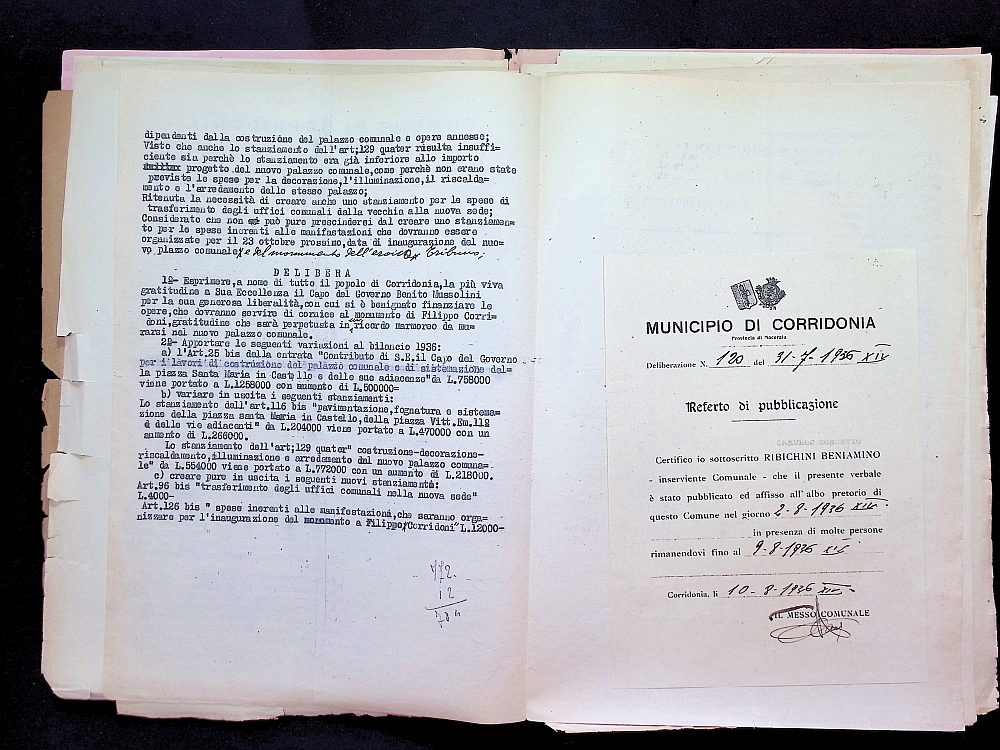 dipendenti dalla costruzione del palazzo comunale e opere annesse;
Visto che anche lo stanziamento dell'art;129 quater risulta insuffi=
ciente sia perchè lo stanziamento era già inferiore allo importo
progetto del nuovo palazzo comunale,come perchè non erano state
previste le spese per la decorazione,l'illuminazione,il riscalda=
mento e l'arredamento dello stesso palazzo;
Ritenuta la necessità di creare anche uno stanziamento per le spese di
trasferimento degli uffici comunali dalla vecchia alla nuova sede;
Considerato che non può pure prescindersi dal creare uno stanziamen=
to per le spese inerenti alle manifastazioni che dovranno essere
organizzate per il 23 ottobre prossimo,data di inaugurazione del nuo=
vo plazzo comunale, e del monumento dell'eroico Tribuno;
D E L I B E R A
1º- Esprimere,a nome di tutto il popolo di Corridonia,la più viva
gratitudine a Sua Eccellenza il Capo del Governo Benito Mussolini
per la sua generosa liberalità,con cui si è benignato finanziare le
opere,che dovranno servire di cornice al monumento di Filippo Corri=
doni,gratitudine che sarà perpetuata in un ricordo marmoreo da mu=
rarsi nel nuovo palazzo comunale.
2º- Apportare le seguenti variazioni al bilancio 1936:
a) l'Art.25 bis della entrata "Contributo di S.E.il Capo del Governo
per i lavori di costruzione del palazzo comunale e di sistemazione del=
la piazza Santa Maria in Castello e delle sue adiacenze"da L.758000
viene portato a L.1258000 con aumento di L.500000=
b) variare in uscita i seguenti stanziamenti:
Lo stanziamento dell'art.116 bis "pavimentazione,fognatura e sistema=
zione della piazza santa Maria in Castello,della piazza Vitt.Em.11º
e delle vie adiacenti" da L.204000 viene portato a L.470000 con un
aumento di L.266000.
Lo stanziamento dell'art;129 quater" costruzione-decorazione-
riscaldamento,illuminazione e arredamento dal nuovo palazzo comuna=
le" da L.554000 viene portato a L.772000 con un aumento di L.218000.
c) creare pure in uscita i seguenti nuovi stanziamenti:
Art.96 bis "trasferimento degli uffici comunali nella nuova sede"
L.4000-
Art.126 bis " spese inerenti alle manifestazioni,che saranno orga=
nizzare per l'inaugurazione del monumento a Filippo Corridoni"L.12000-
772.
12
784
MUNICIPIO DI CORRIDONIA
Provincia di Macerata
Deliberazione N. 120 del 31-7-1936 XIV
Referto di pubblicazione
Certifico io sottoscritto RIBICHINI BENIAMINO
- inserviente Comunale - che il presente verbale
è stato pubblicato ed affisso all'albo pretorio di
questo Comune nel giorno 2-8-1936 XIV
in presenza di molte persone
rimanendovi fino al 9-8-1936 XIV
Corridonia, li 10-8-1936 XIV
IL MESSO COMUNALE